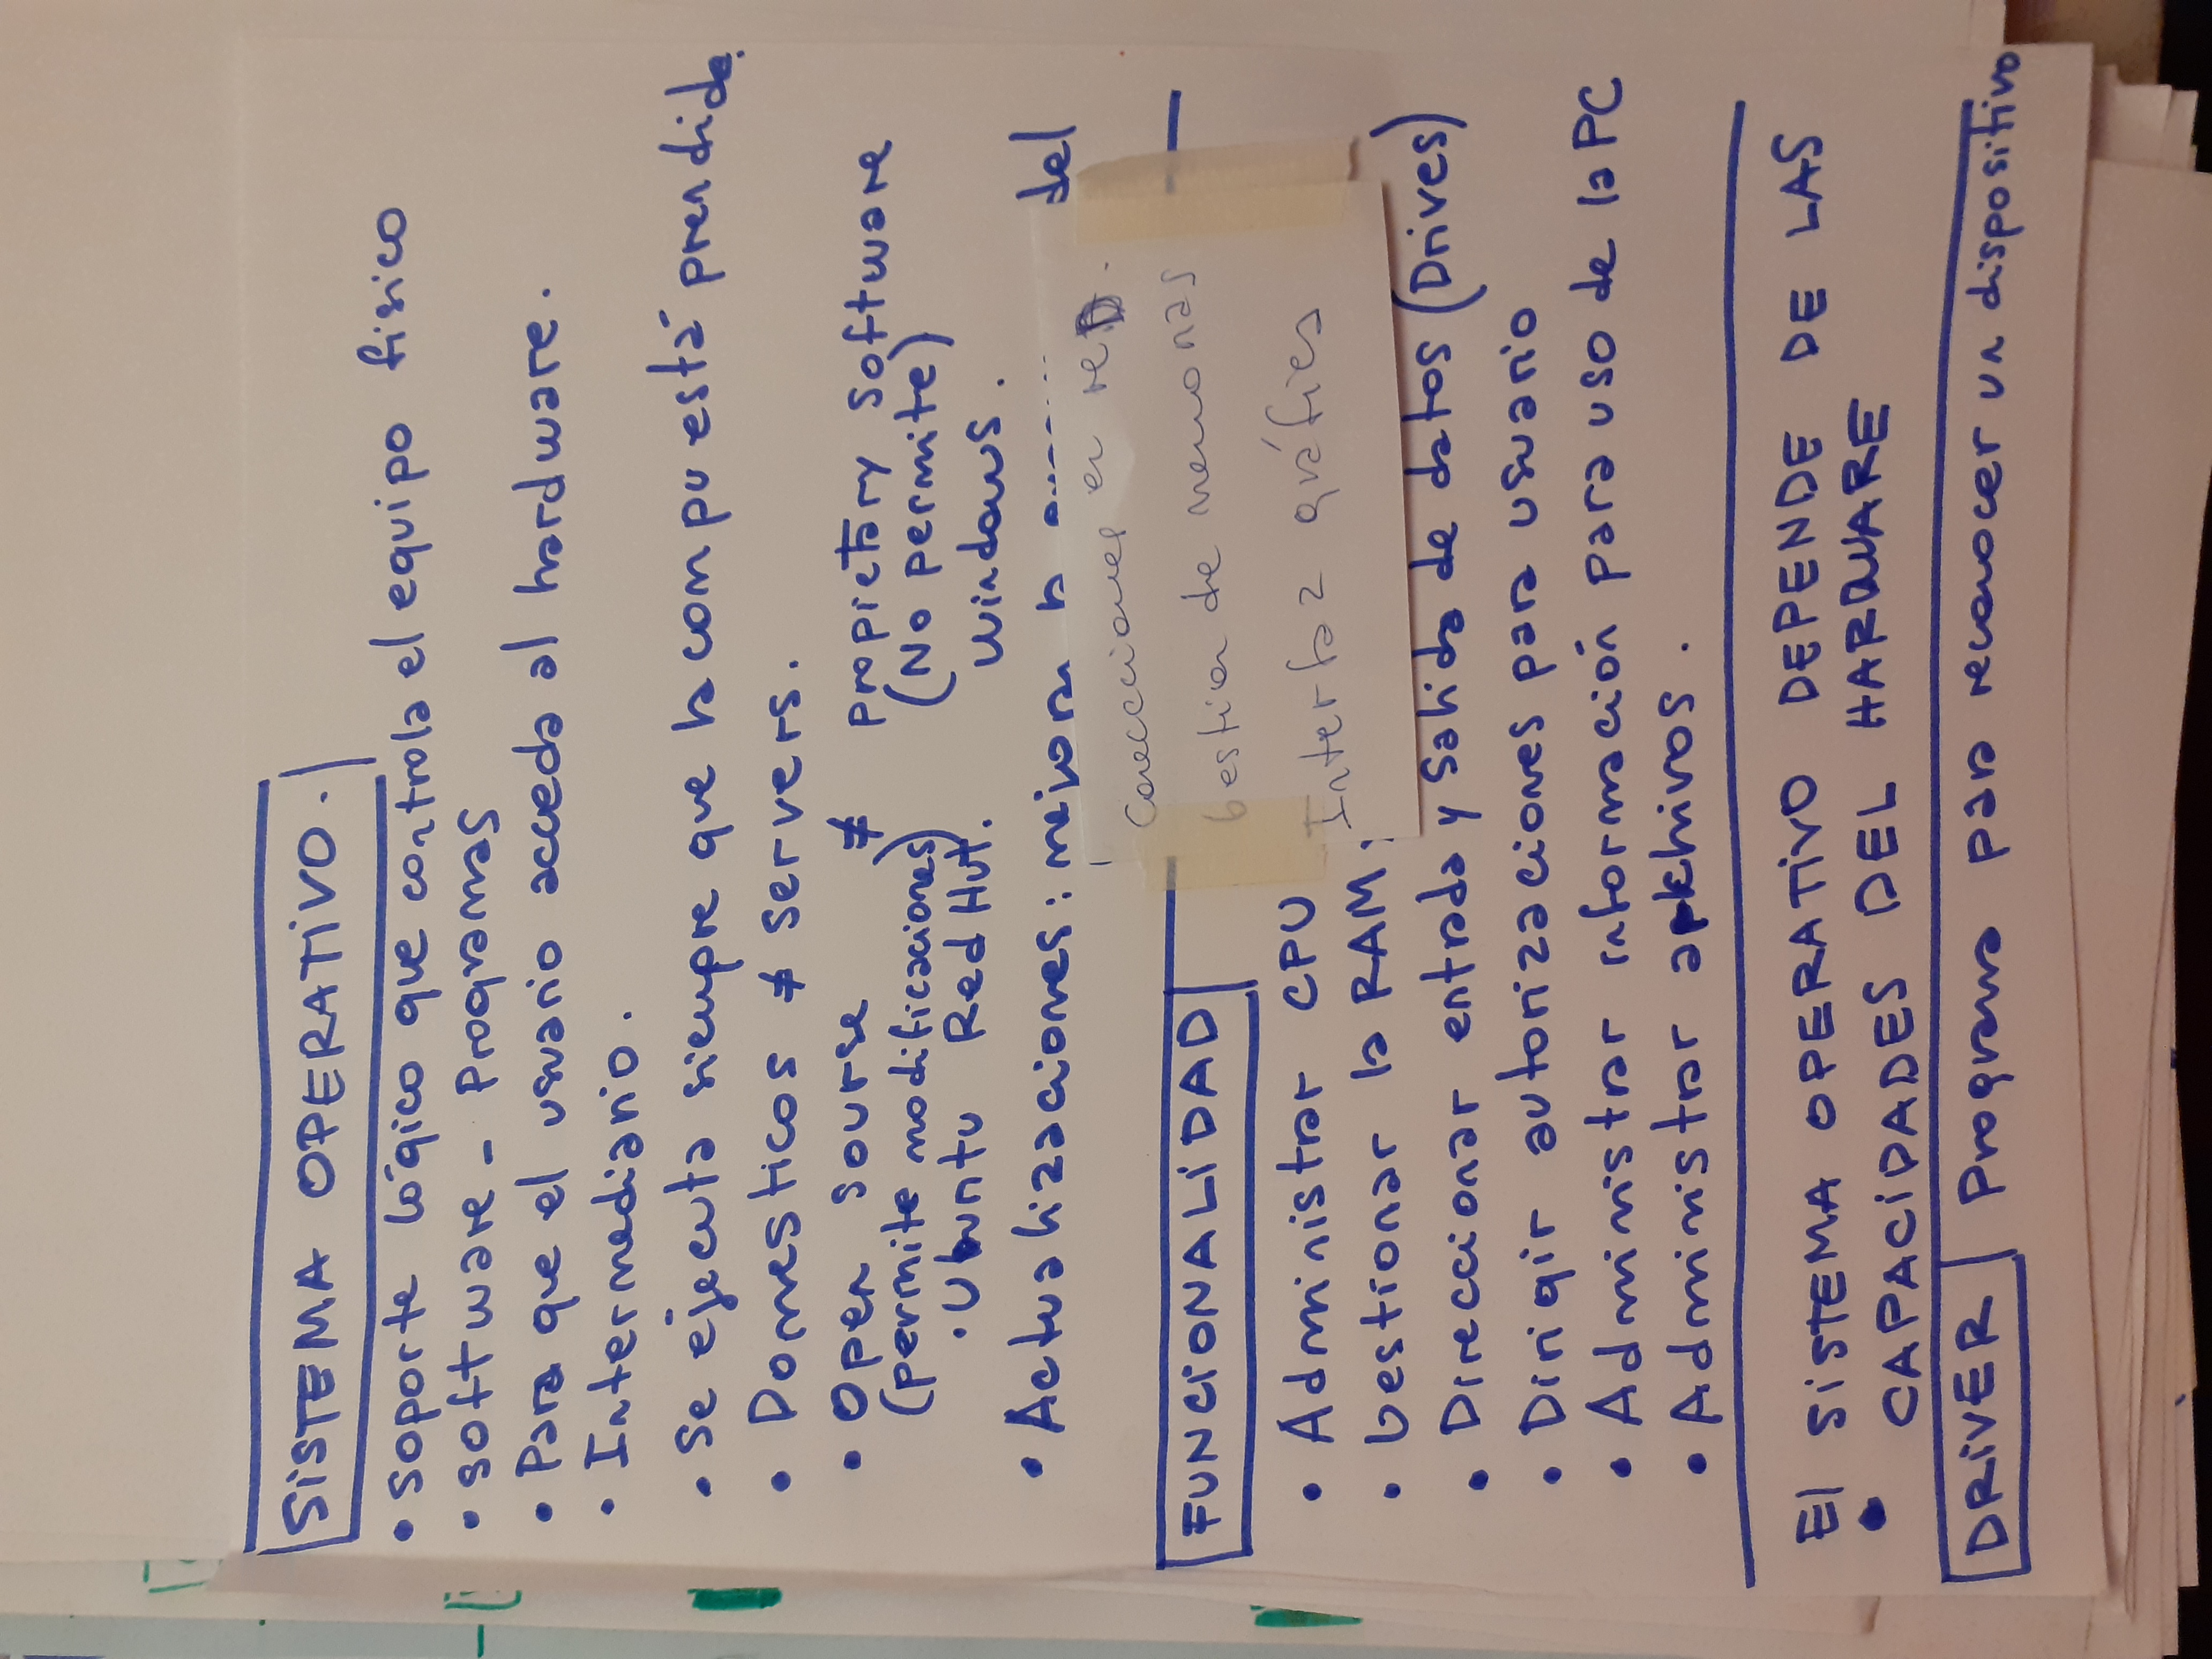 SISTEMA OPERATIVO.
• soporte lógico que controla el equipo fisico
• software - Programas
• Para que el usuario acceda al hardware.
• Intermediario.
• Se ejecuta siempre que la compu está prendida.
• Domesticos ≠ servers.
• Open sourse ≠ propietary software
(permite modificaciones) (No permite)
• Ubuntu Red Hut. windows.
• Actualizaciones: mejora la del
Conecciones en reD.
Gestion de memorias
Interfaz gráfica
FUNCIONALIDAD
• Administrar CPU
• Gestionar la RAM
• Direccionar entrada y salida de datos (Drives)
• Dirigir autorizaciones para usuario
• Administrar información para uso de la PC
• Administrar archivos.
El SISTEMA OPERATIVO DEPENDE DE LAS
• CAPACIDADES DEL HARDWARE
DRIVER Programa para reconocer un dispositivo